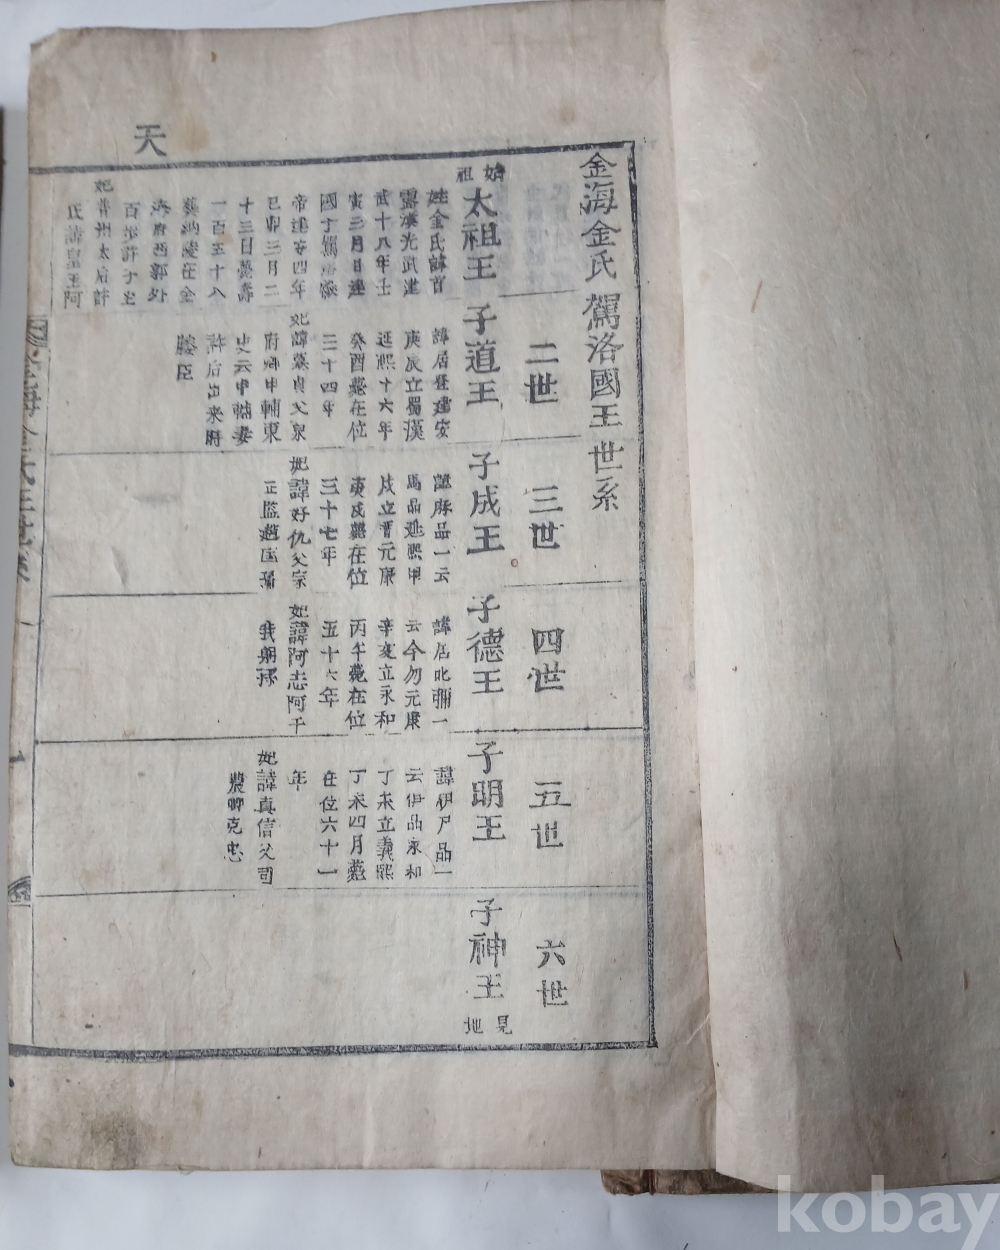 天
金海金氏 駕洛國王 世系
始祖
太祖王
姓金氏諱首
露漢光武建
武十八年壬
寅三月日建
國于駕洛漢
帝建安四年
己卯三月二
十三日薨壽
一百五十八
葬納陵在金
海府西郭外
百步許子坐
妃普州太后許
氏諱皇王阿
二世
子道王
諱居登建安
庚辰立蜀漢
延熙十六年
癸酉薨在位
三十四年
妃諱慕貞父泉
府卿申輔東
史云申輔妻
許后出來時
媵臣
三世
子成王
諱麻品一云
馬品延熙甲
戌立晋元康
庚戌薨在位
三十七年
妃諱好仇父宗
正監趙匡
四世
子德王
諱居叱彌一
云今勿元康
辛亥立永和
丙午薨在位
五十六年
妃諱阿志阿干
我躬孫
五世
子明王
諱伊尸品一
云伊品永和
丁未立義熙
丁未四月薨
在位六十一
年
妃諱真信父司
農卿克忠
六世
子神王
見地
一
kobay